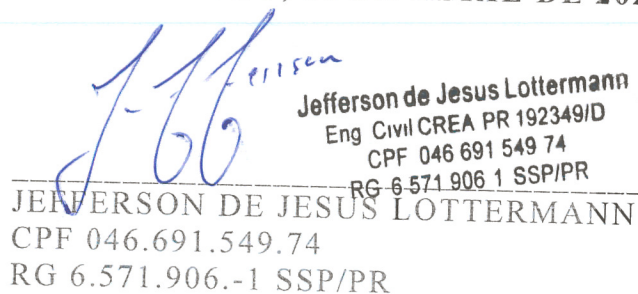 DE 202
Jefferson
Jefferson de Jesus Lottermann
Eng Civil CREA PR 192349/D
CPF 046 691 549 74
RG 6 571 906 1 SSP/PR
JEFFERSON DE JESUS LOTTERMANN
CPF 046.691.549.74
RG 6.571.906.-1 SSP/PR